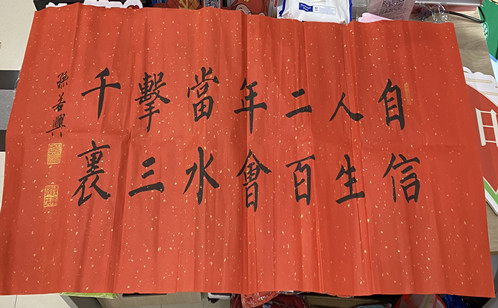 自信
人生
二百
年會
當水
擊三
千裏